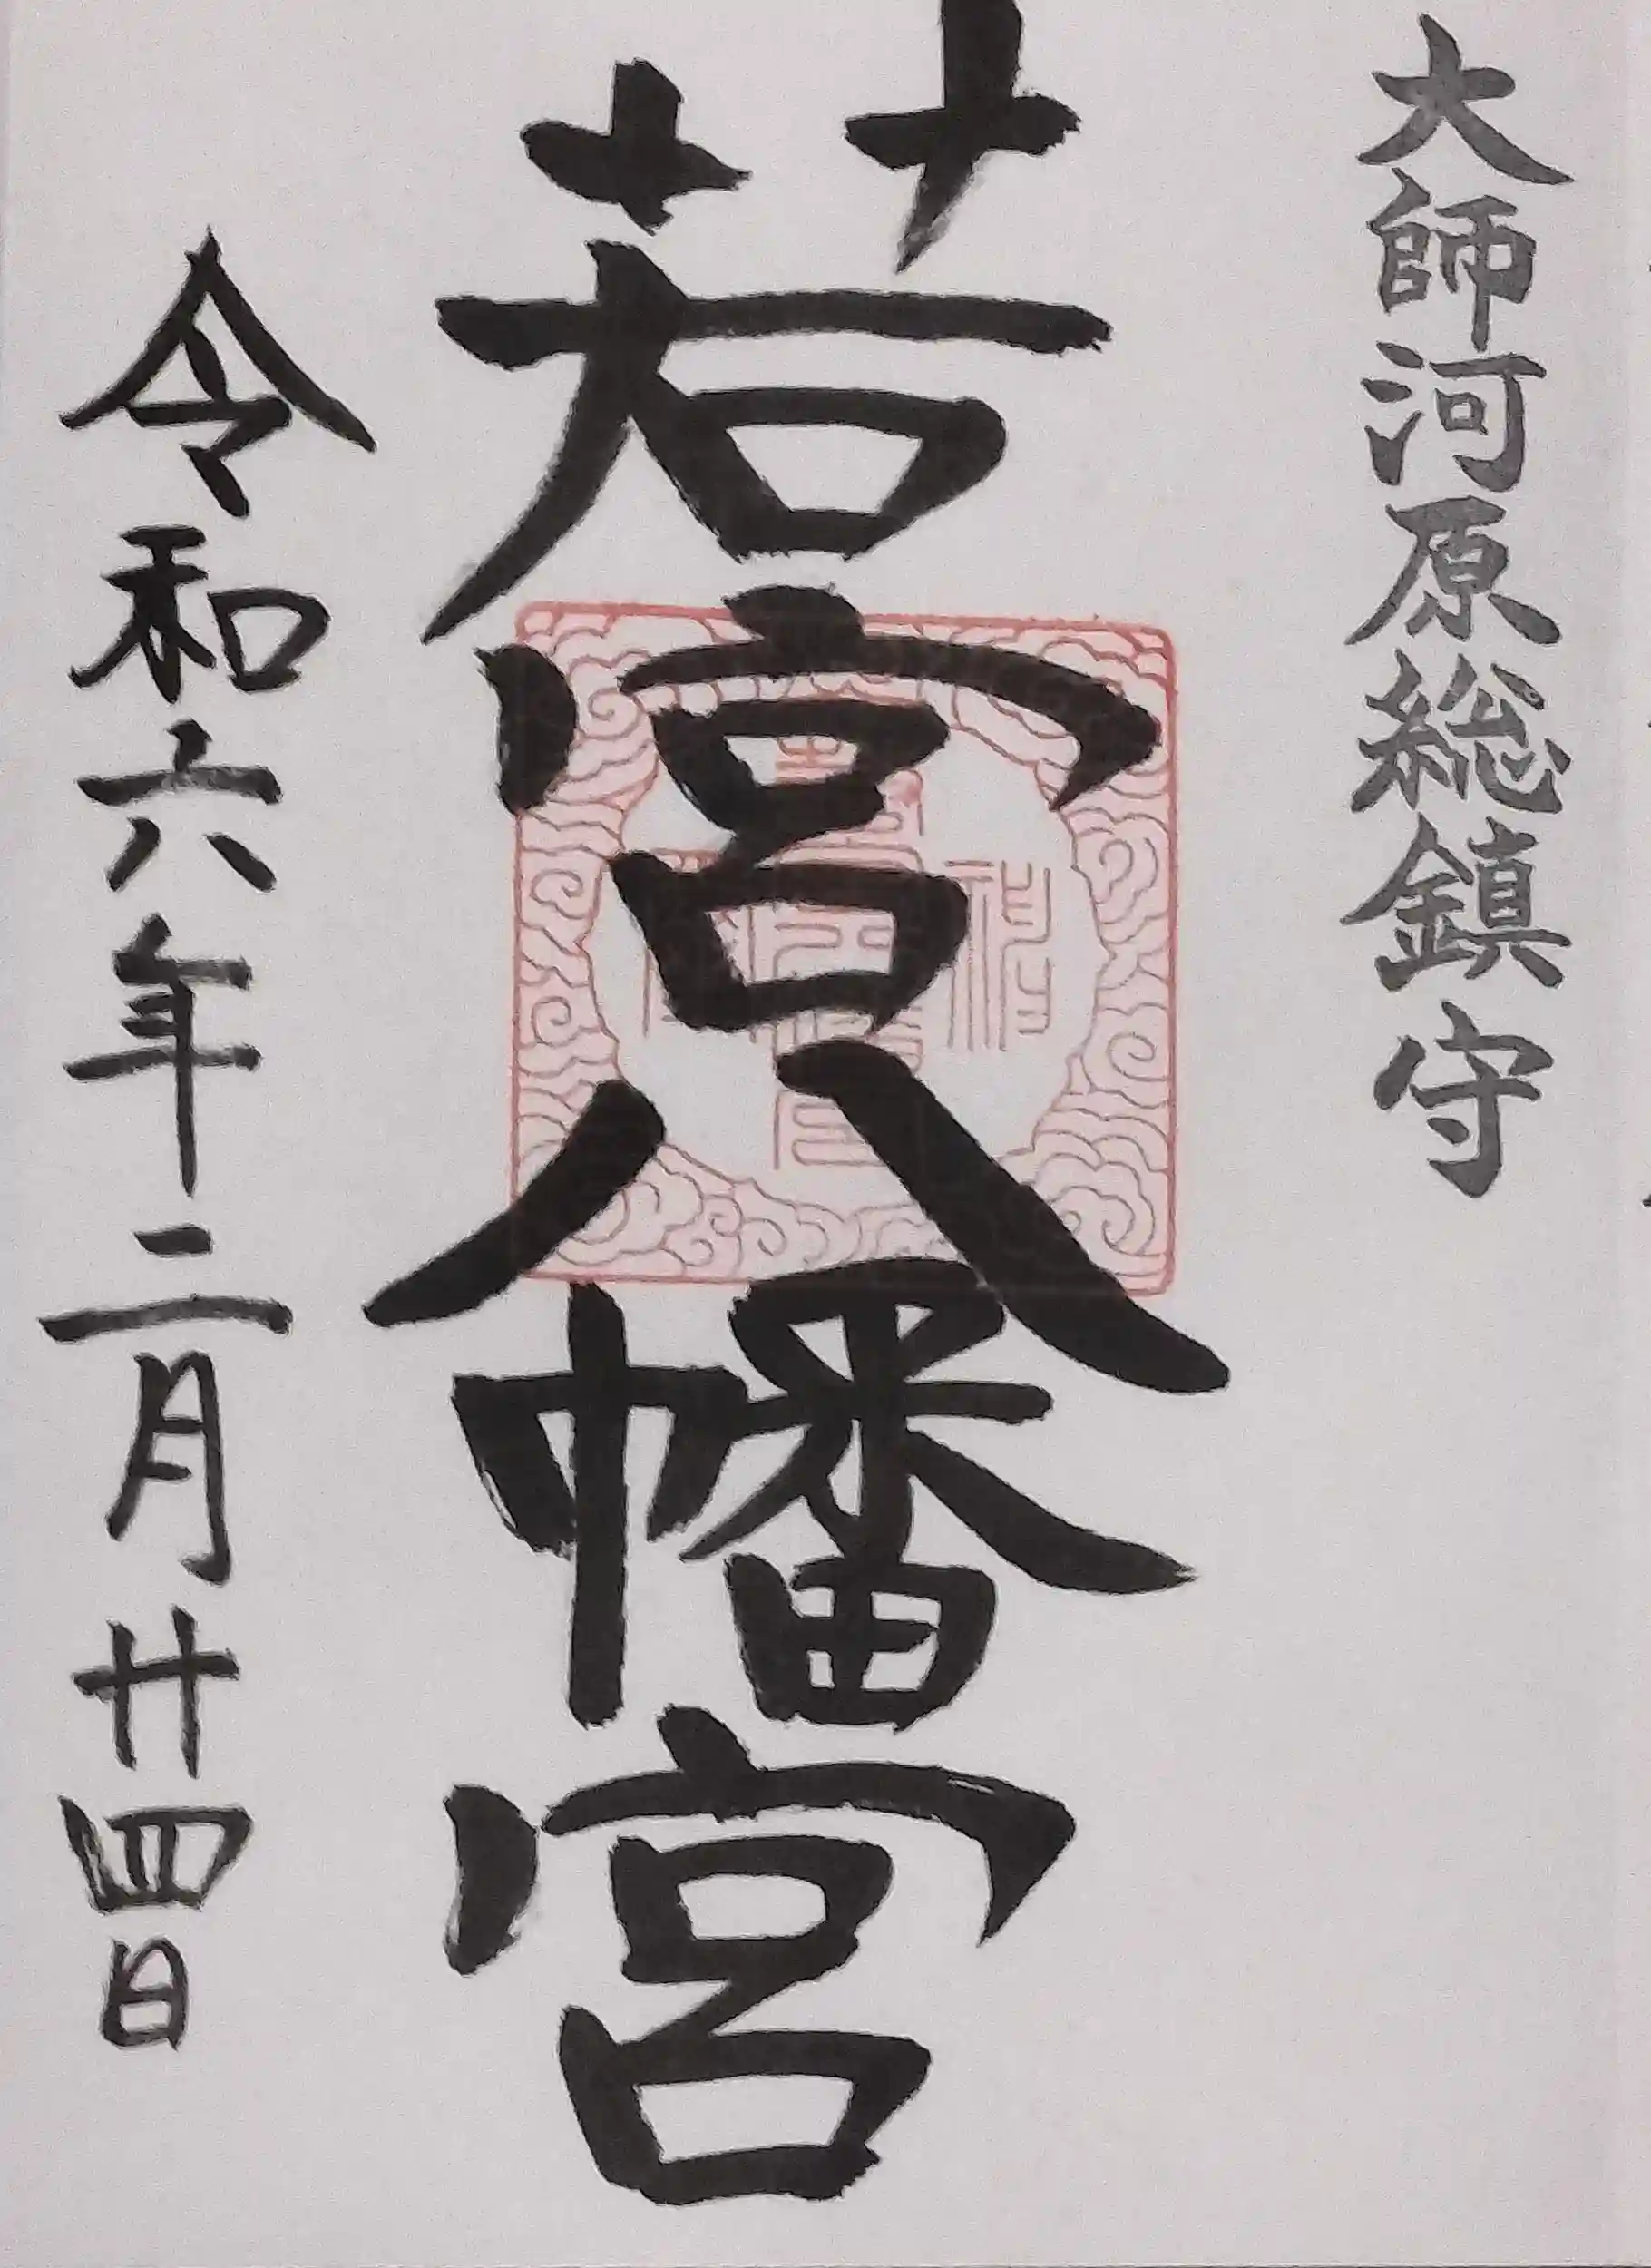 大師河原総鎮守
若宮八幡宮
令和六年二月廿四日